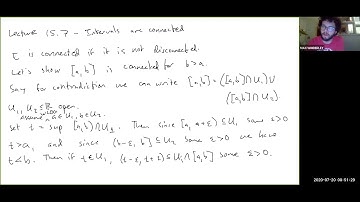 Lecture 15.7 - Intervals are connected
E is connected if it is not disconnected.
Let's show [a,b] is connected for b>a.
Say for contradiction we can write [a,b] = ([a,b] ∩ U₁) ∪
([a,b] ∩ U₂)
U₁, U₂ ⊆ ℝ open.
Assume WLOG a ∈ U₁, b ∈ U₂.
Set t = sup [a,b) ∩ U₁. Then since [a, a+ε) ⊆ U₁ some ε>0
t>a, and since (b-ε, b] ⊆ U₂ some ε>0 we have
t<b. Then if t ∈ U₁, (t-ε, t+ε) ⊆ U₁ ∩ [a,b] some ε>0.
2020-07-20 00:51:29